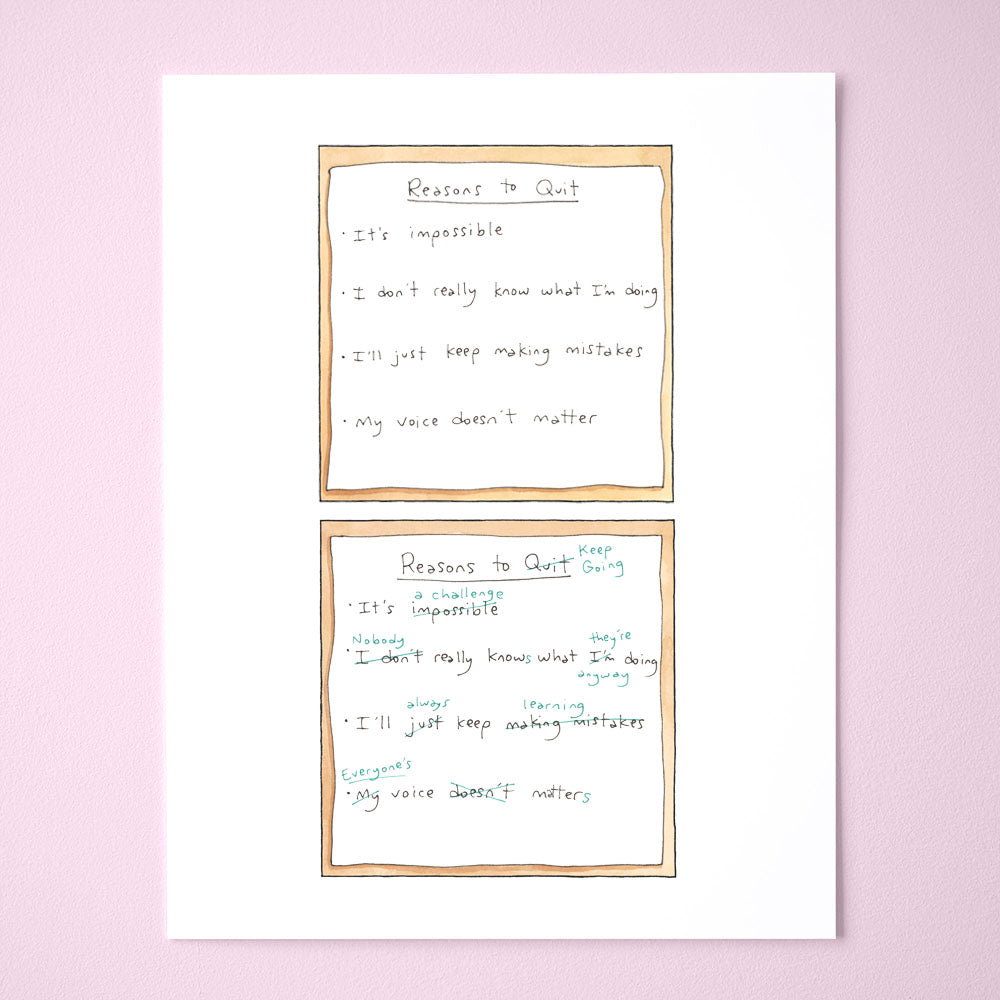 Reasons to Quit
• It's impossible
• I don't really know what I'm doing
• I'll just keep making mistakes
• My voice doesn't matter
Keep
Reasons to Quit Going
a challenge
• It's impossible
Nobody they're
• I don't really knows what I'm doing
anyway
always learning
• I'll just keep making mistakes
Everyone's
• My voice doesn't matters